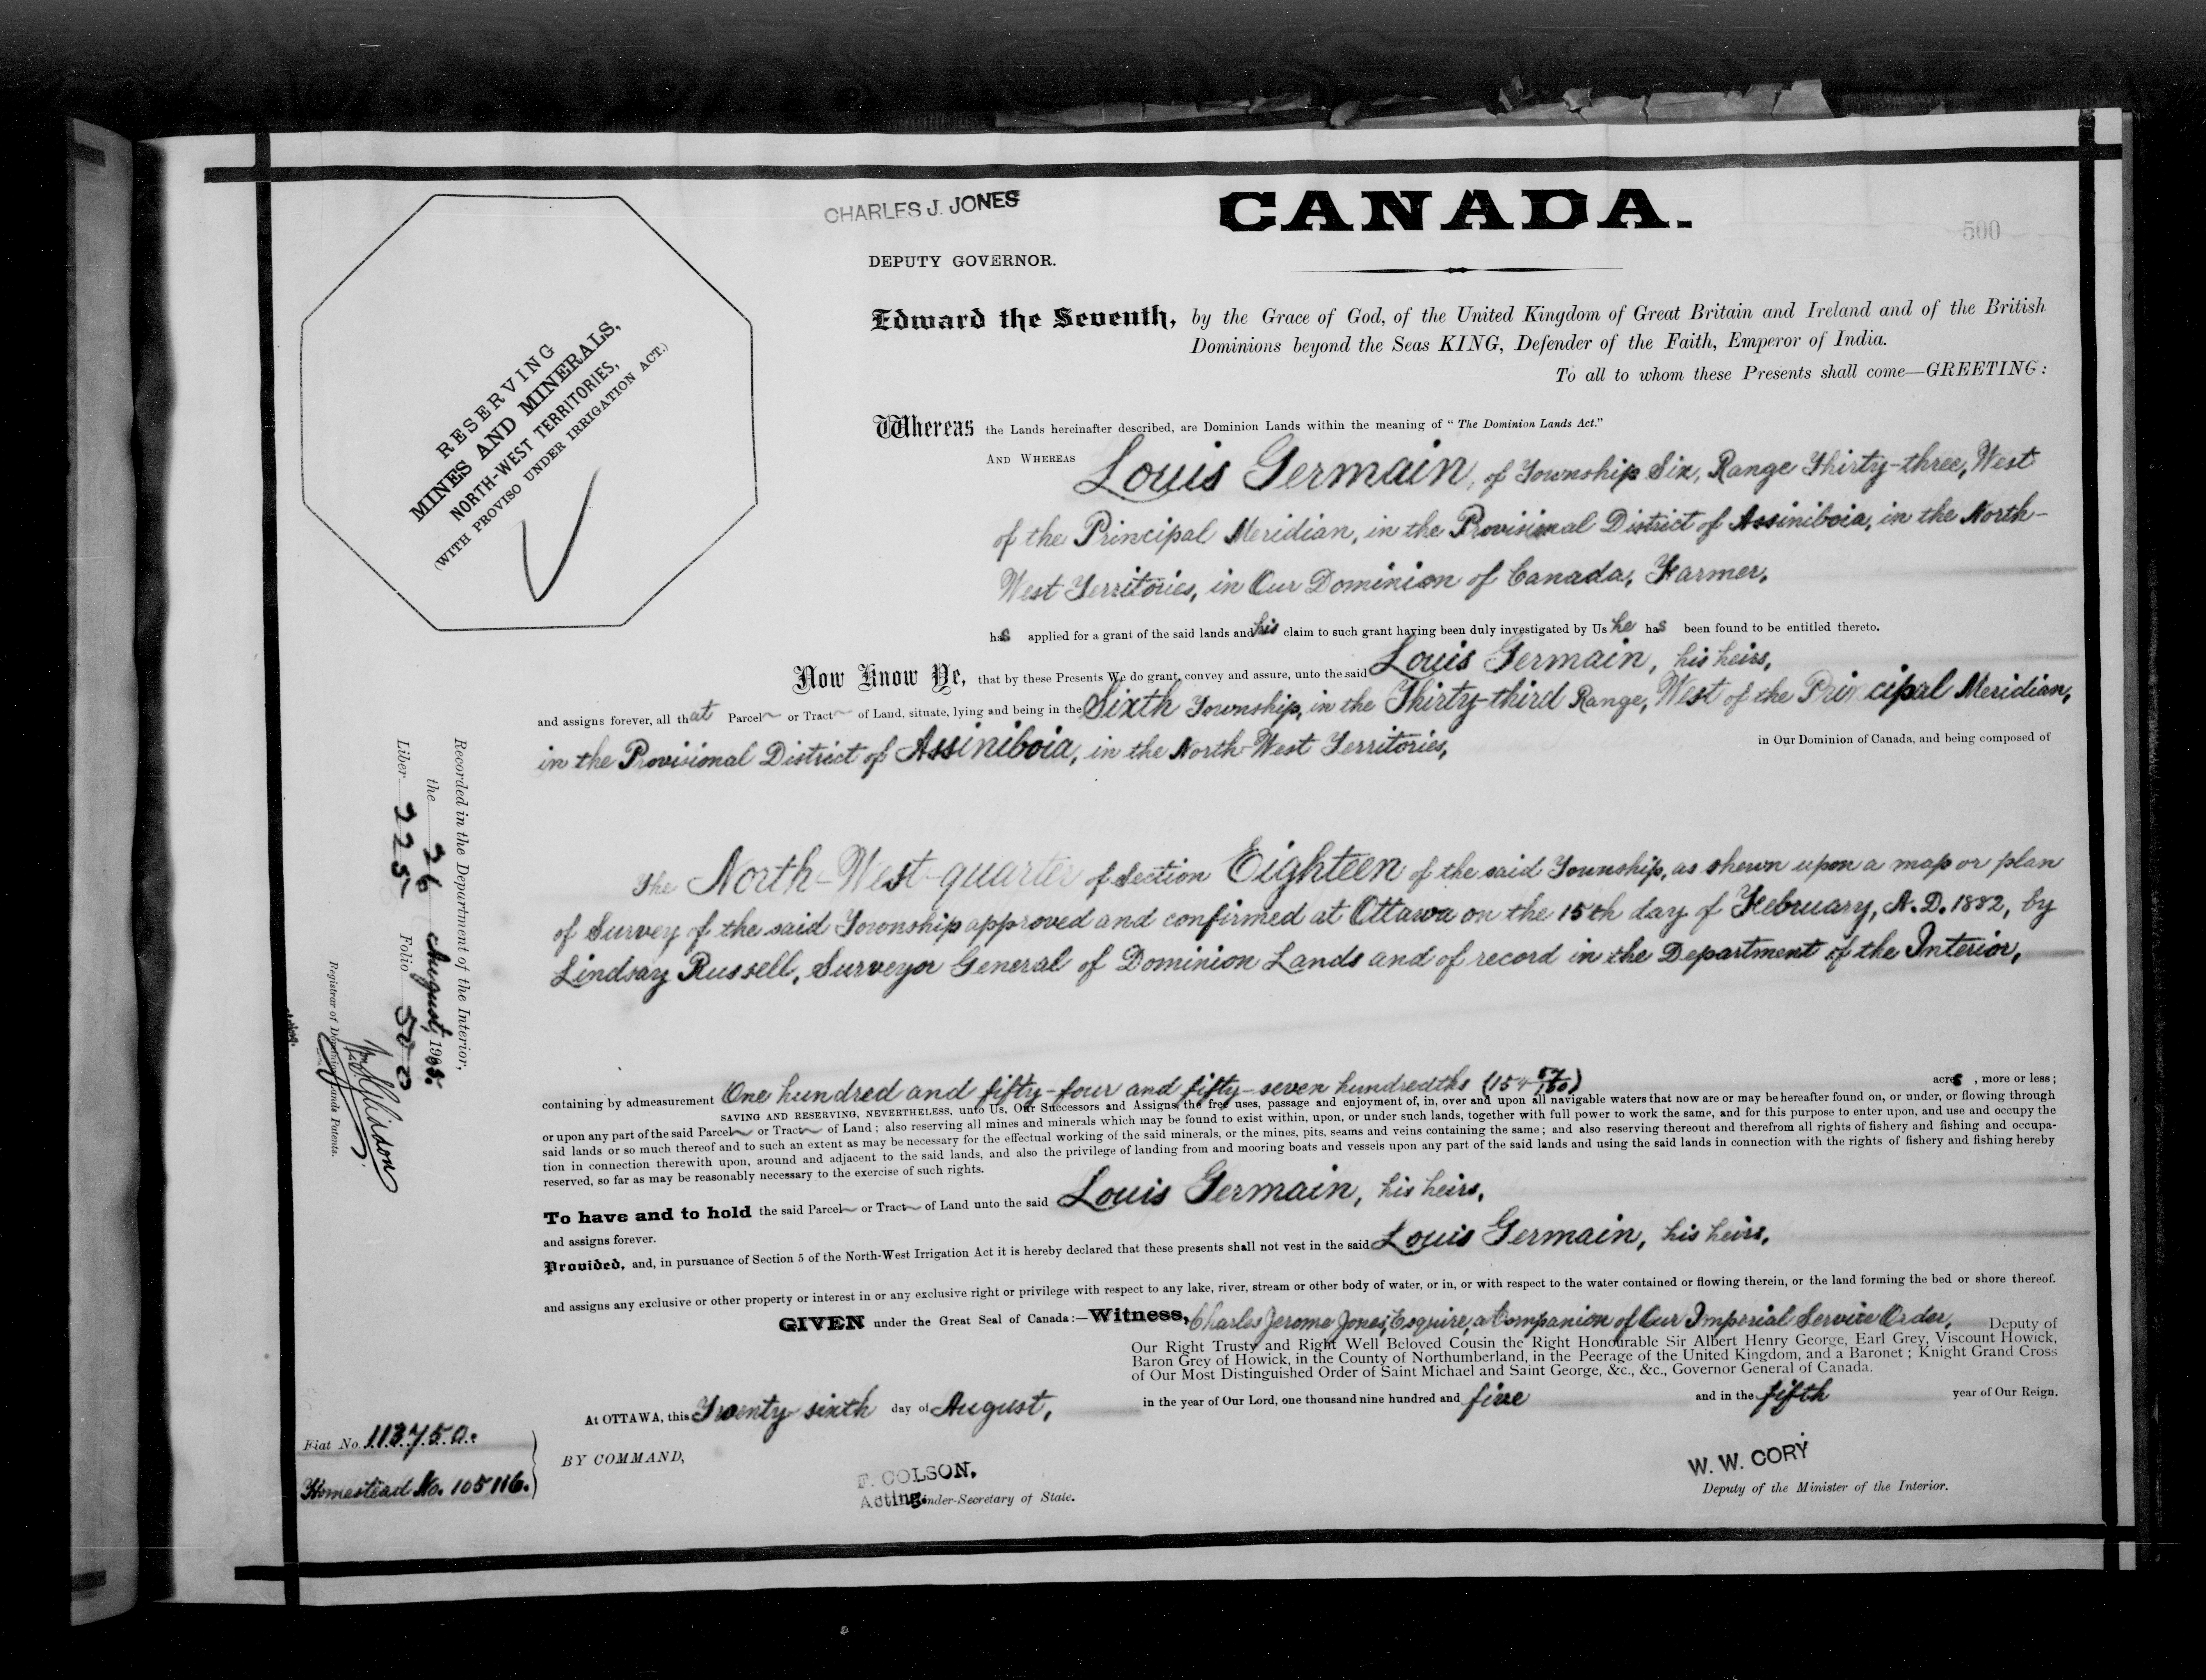 CHARLES J. JONES
CANADA.
500
DEPUTY GOVERNOR.
RESERVING
MINES AND MINERALS,
NORTH-WEST TERRITORIES,
(WITH PROVISO UNDER IRRIGATION ACT.)
Edward the Seventh, by the Grace of God, of the United Kingdom of Great Britain and Ireland and of the British
Dominions beyond the Seas KING, Defender of the Faith, Emperor of India.
To all to whom these Presents shall come—GREETING:
Whereas the Lands hereinafter described, are Dominion Lands within the meaning of "The Dominion Lands Act."
AND WHEREAS Louis Germain, of Township Six, Range Thirty-three, West
of the Principal Meridian, in the Provisional District of Assiniboia, in the North-
West Territories, in Our Dominion of Canada, Farmer,
has applied for a grant of the said lands and his claim to such grant having been duly investigated by Us he has been found to be entitled thereto.
Now Know Ye, that by these Presents We do grant, convey and assure, unto the said Louis Germain, his heirs,
and assigns forever, all that Parcel or Tract of Land, situate, lying and being in the Sixth Township, in the Thirty-third Range, West of the Principal Meridian,
in the Provisional District of Assiniboia, in the North-West Territories, in Our Dominion of Canada, and being composed of
The North-West-quarter of Section Eighteen of the said Township, as shewn upon a map or plan
of Survey of the said Township approved and confirmed at Ottawa on the 15th day of February, A.D. 1882, by
Lindsay Russell, Surveyor General of Dominion Lands and of record in the Department of the Interior,
containing by admeasurement One hundred and fifty-four and fifty-seven hundredths (154 57/100) acres, more or less;
SAVING AND RESERVING, NEVERTHELESS, unto Us, Our Successors and Assigns, the free uses, passage and enjoyment of, in, over and upon all navigable waters that now are or may be hereafter found on, or under, or flowing through
or upon any part of the said Parcel or Tract of Land; also reserving all mines and minerals which may be found to exist within, upon, or under such lands, together with full power to work the same, and for this purpose to enter upon, and use and occupy the
said lands or so much thereof and to such an extent as may be necessary for the effectual working of the said minerals, or the mines, pits, seams and veins containing the same; and also reserving thereout and therefrom all rights of fishery and fishing and occupa-
tion in connection therewith upon, around and adjacent to the said lands, and also the privilege of landing from and mooring boats and vessels upon any part of the said lands and using the said lands in connection with the rights of fishery and fishing hereby
reserved, so far as may be reasonably necessary to the exercise of such rights.
To have and to hold the said Parcel or Tract of Land unto the said Louis Germain, his heirs,
and assigns forever.
Provided, and, in pursuance of Section 5 of the North-West Irrigation Act it is hereby declared that these presents shall not vest in the said Louis Germain, his heirs,
and assigns any exclusive or other property or interest in or any exclusive right or privilege with respect to any lake, river, stream or other body of water, or in, or with respect to the water contained or flowing therein, or the land forming the bed or shore thereof.
GIVEN under the Great Seal of Canada:—Witness, Charles Jerome Jones, Esquire, a Companion of Our Imperial Service Order, Deputy of
Our Right Trusty and Right Well Beloved Cousin the Right Honourable Sir Albert Henry George, Earl Grey, Viscount Howick,
Baron Grey of Howick, in the County of Northumberland, in the Peerage of the United Kingdom, and a Baronet; Knight Grand Cross
of Our Most Distinguished Order of Saint Michael and Saint George, &c., &c., Governor General of Canada.
At OTTAWA, this Twenty sixth day of August, in the year of Our Lord, one thousand nine hundred and five and in the fifth year of Our Reign.
BY COMMAND,
F. COLSON.
Acting Under-Secretary of State.
W. W. CORY
Deputy of the Minister of the Interior.
Fiat No. 113750.
Homestead No. 105116.
Recorded in the Department of the Interior,
the 26 August, 1905.
Liber 225 Folio 500
Registrar of Dominion Lands Patents.